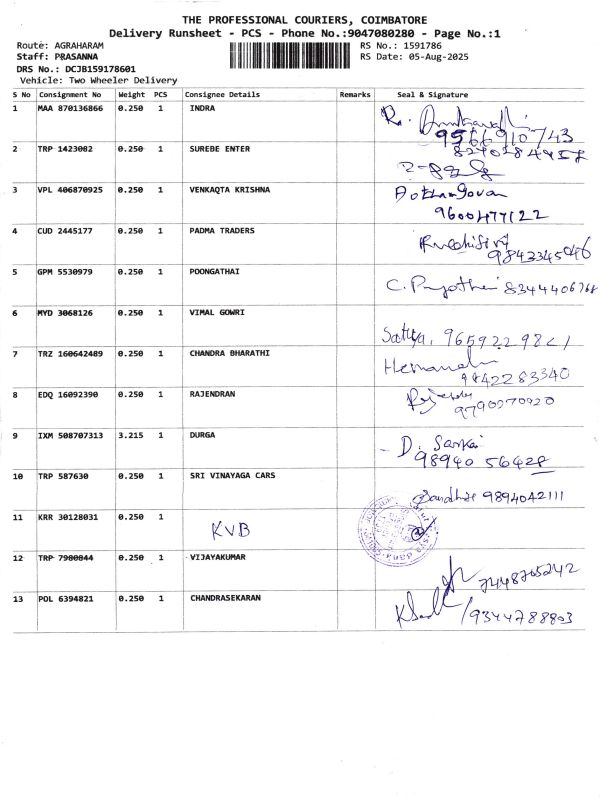 THE PROFESSIONAL COURIERS, COIMBATORE
Delivery Runsheet - PCS - Phone No.:9047080280 - Page No.:1
Route: AGRAHARAM RS No.: 1591786
Staff: PRASANNA RS Date: 05-Aug-2025
DRS No.: DCJB159178601
Vehicle: Two Wheeler Delivery
S No Consignment No Weight PCS Consignee Details Remarks Seal & Signature
1 MAA 870136866 0.250 1 INDRA
9566910743
2 TRP 1423082 0.250 1 SUREBE ENTER
3 VPL 406870925 0.250 1 VENKAQTA KRISHNA
9600477122
4 CUD 2445177 0.250 1 PADMA TRADERS
9843345046
5 GPM 5530979 0.250 1 POONGATHAI
8344406768
6 MYD 3068126 0.250 1 VIMAL GOWRI
Sathya, 9659229821
7 TRZ 160642489 0.250 1 CHANDRA BHARATHI
9842283340
8 EDQ 16092390 0.250 1 RAJENDRAN
9790970920
9 IXM 508707313 3.215 1 DURGA
D. Sankar
98940 56428
10 TRP 587630 0.250 1 SRI VINAYAGA CARS
9894042111
11 KRR 30128031 0.250 1 KVB
12 TRP 7980844 0.250 1 VIJAYAKUMAR
7448765242
13 POL 6394821 0.250 1 CHANDRASEKARAN
9344788803